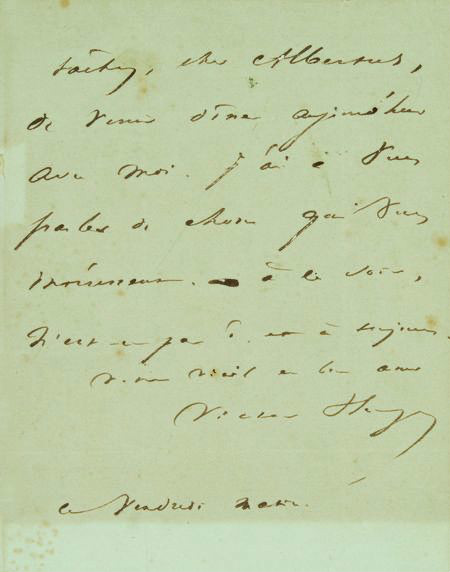 tâchez, cher Albertus,
de venir dîner aujourd'hui
avec moi. J'ai à vous
parler de choses qui vous
intéressent. — à ce soir,
n'est-ce pas ? et à toujours.
votre vieil et bon ami
Victor Hugo
ce vendredi matin.